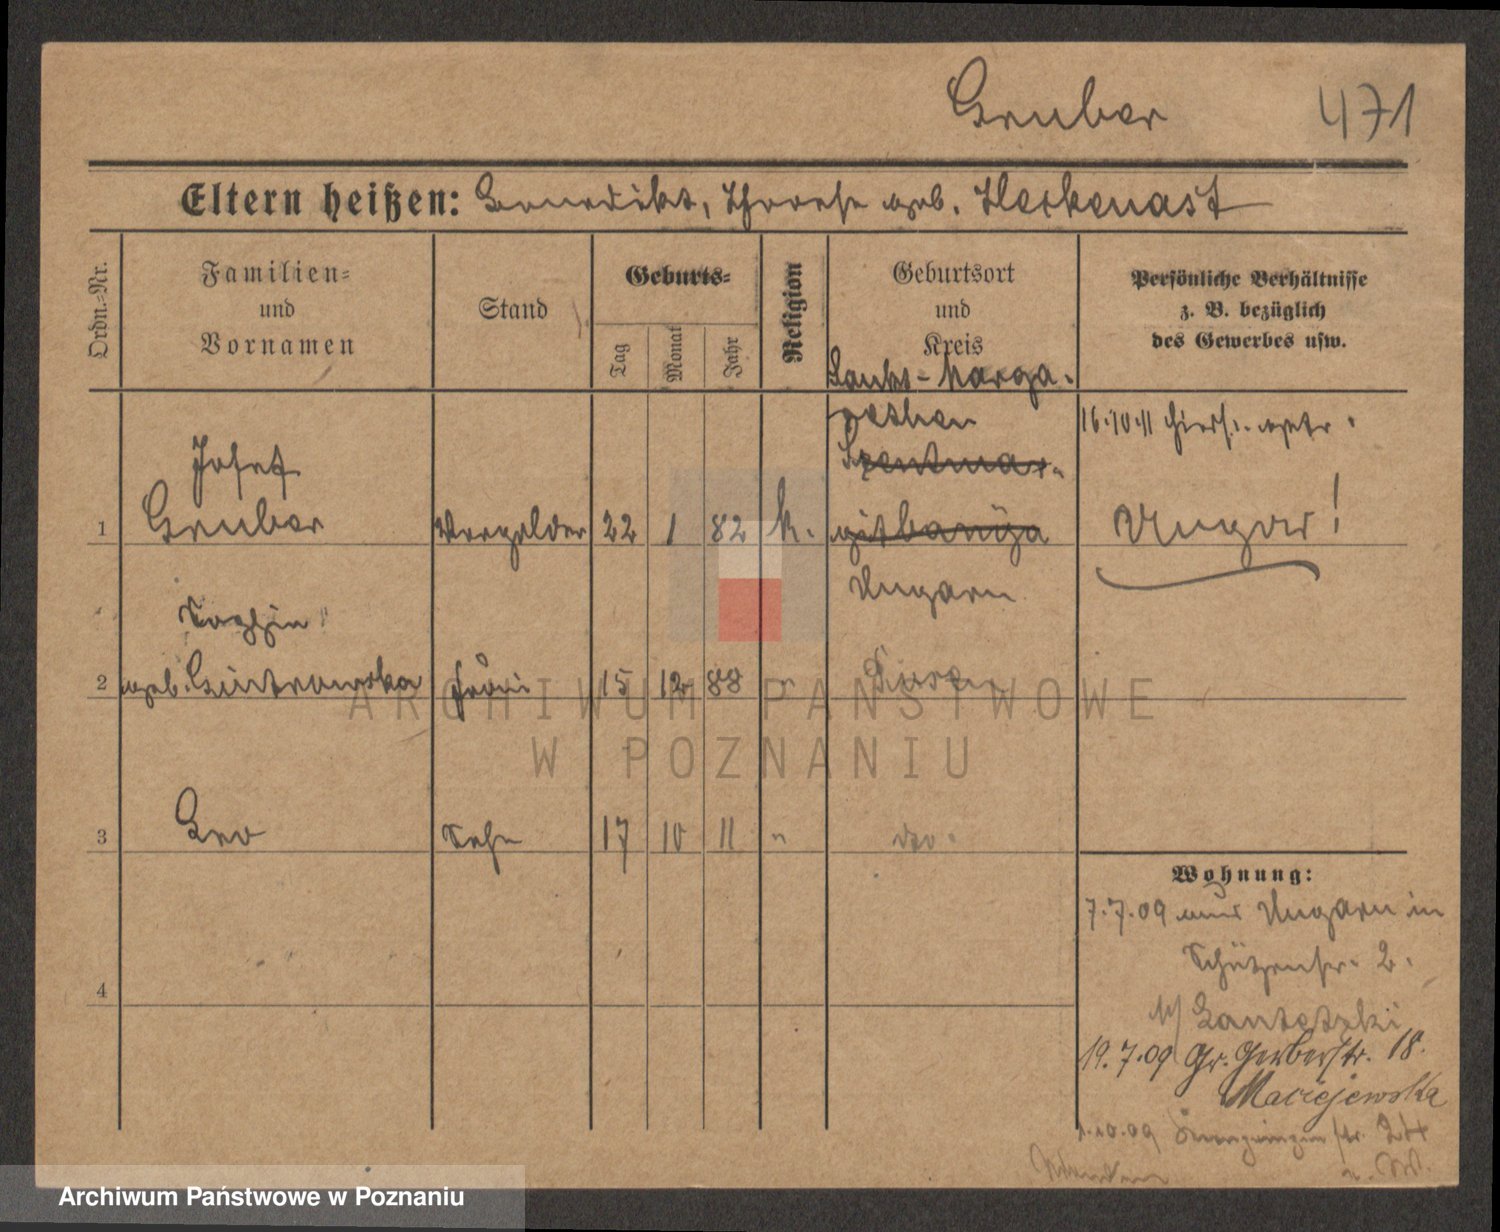 Gruber 471
Eltern heißen: Benedikt, Therese geb. Heckenast
Ordn.-Nr.
Familien-
und
Vornamen
Stand
Geburts-
Tag
Monat
Jahr
Religion
Geburtsort
und
Kreis
Persönliche Verhältnisse
z. B. bezüglich
des Gewerbes usw.
Sankt-Marga-
rethen
Szentmar-
gitbanija
Ungarn
16.10.11 hiers. getr.
Ungar!
Josef
1 Gruber Vergolder 22 1 82 k.
Sophie
2 geb. Gintrowska Frau 15 12 88 " Posen
3 Leo Sohn 17 10 11 " do.
4
Wohnung:
7.7.09 aus Ungarn in
Schützenstr. 2.
b/
19.7.09 Gr. Gerberstr. 18.
Maciejewska
1.10.09 str. 24
ARCHIWUM PAŃSTWOWE
W POZNANIU
Archiwum Państwowe w Poznaniu